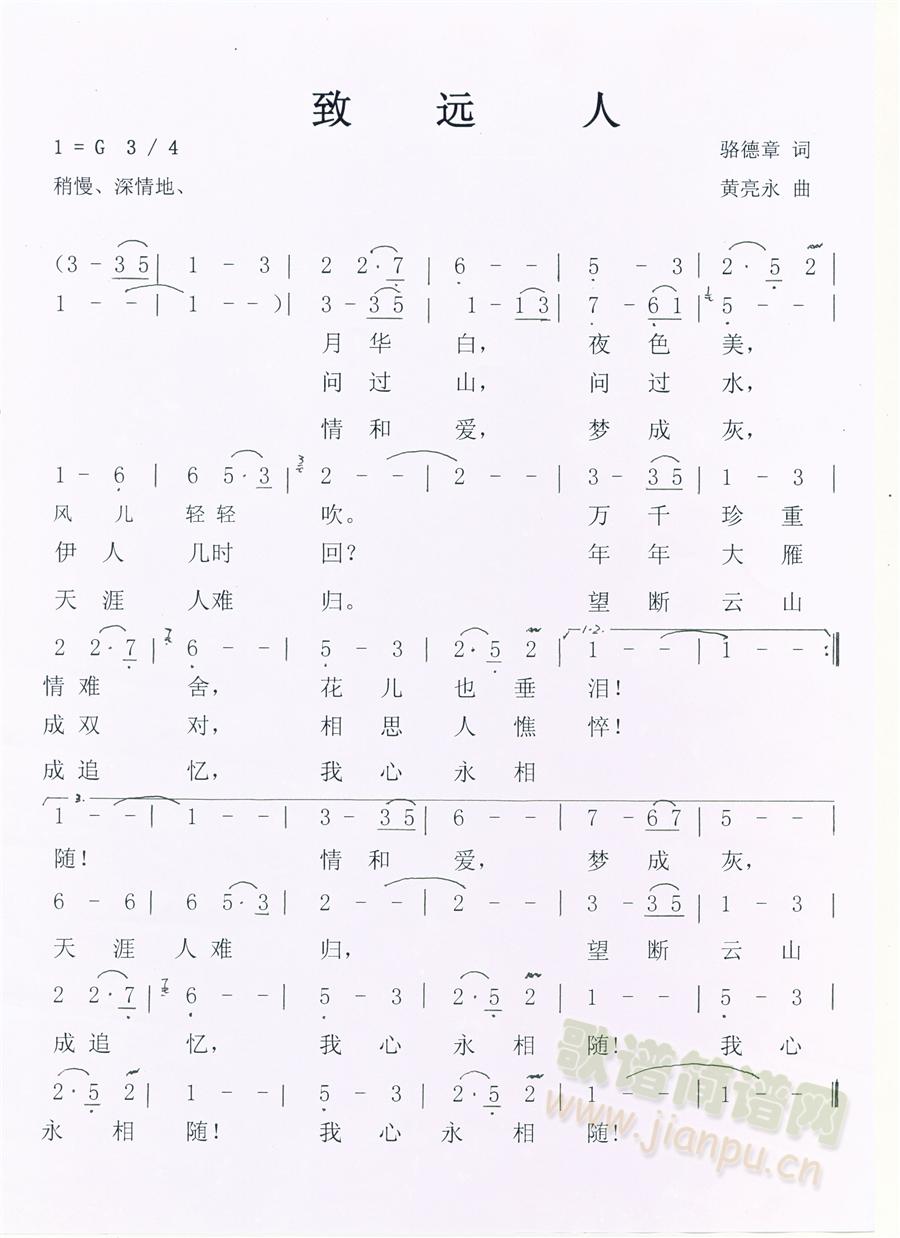 致 远 人
1 = G 3 / 4 骆德章 词
稍慢、深情地、 黄亮永 曲
(3 - 3 5 | 1 - 3 | 2 2 · 7 | 6 - - | 5 - 3 | 2 · 5 2 |
1 - - | 1 - - ) | 3 - 3 5 | 1 - 1 3 | 7 - 6 1 | 5 - - |
月 华 白, 夜 色 美,
问 过 山, 问 过 水,
情 和 爱, 梦 成 灰,
1 - 6 | 6 5 · 3 | 2 - - | 2 - - | 3 - 3 5 | 1 - 3 |
风 儿 轻 轻 吹。 万 千 珍 重
伊 人 几时 回? 年 年 大 雁
天 涯 人难 归。 望 断 云 山
2 2 · 7 | 6 - - | 5 - 3 | 2 · 5 2 | 1 - - | 1 - - :‖
情 难 舍, 花 儿 也 垂 泪!
成 双 对, 相 思 人 憔 悴!
成 追 忆, 我 心 永 相
1 - - | 1 - - | 3 - 3 5 | 6 - - | 7 - 6 7 | 5 - - |
随! 情 和 爱, 梦 成 灰,
6 - 6 | 6 5 · 3 | 2 - - | 2 - - | 3 - 3 5 | 1 - 3 |
天 涯 人 难 归, 望 断 云 山
2 2 · 7 | 6 - - | 5 - 3 | 2 · 5 2 | 1 - - | 5 - 3 |
成 追 忆, 我 心 永 相 随! 我 心
2 · 5 2 | 1 - - | 5 - 3 | 2 · 5 2 | 1 - - | 1 - - ‖
永 相 随! 我 心 永 相 随!
歌谱简谱网
www.jianpu.cn